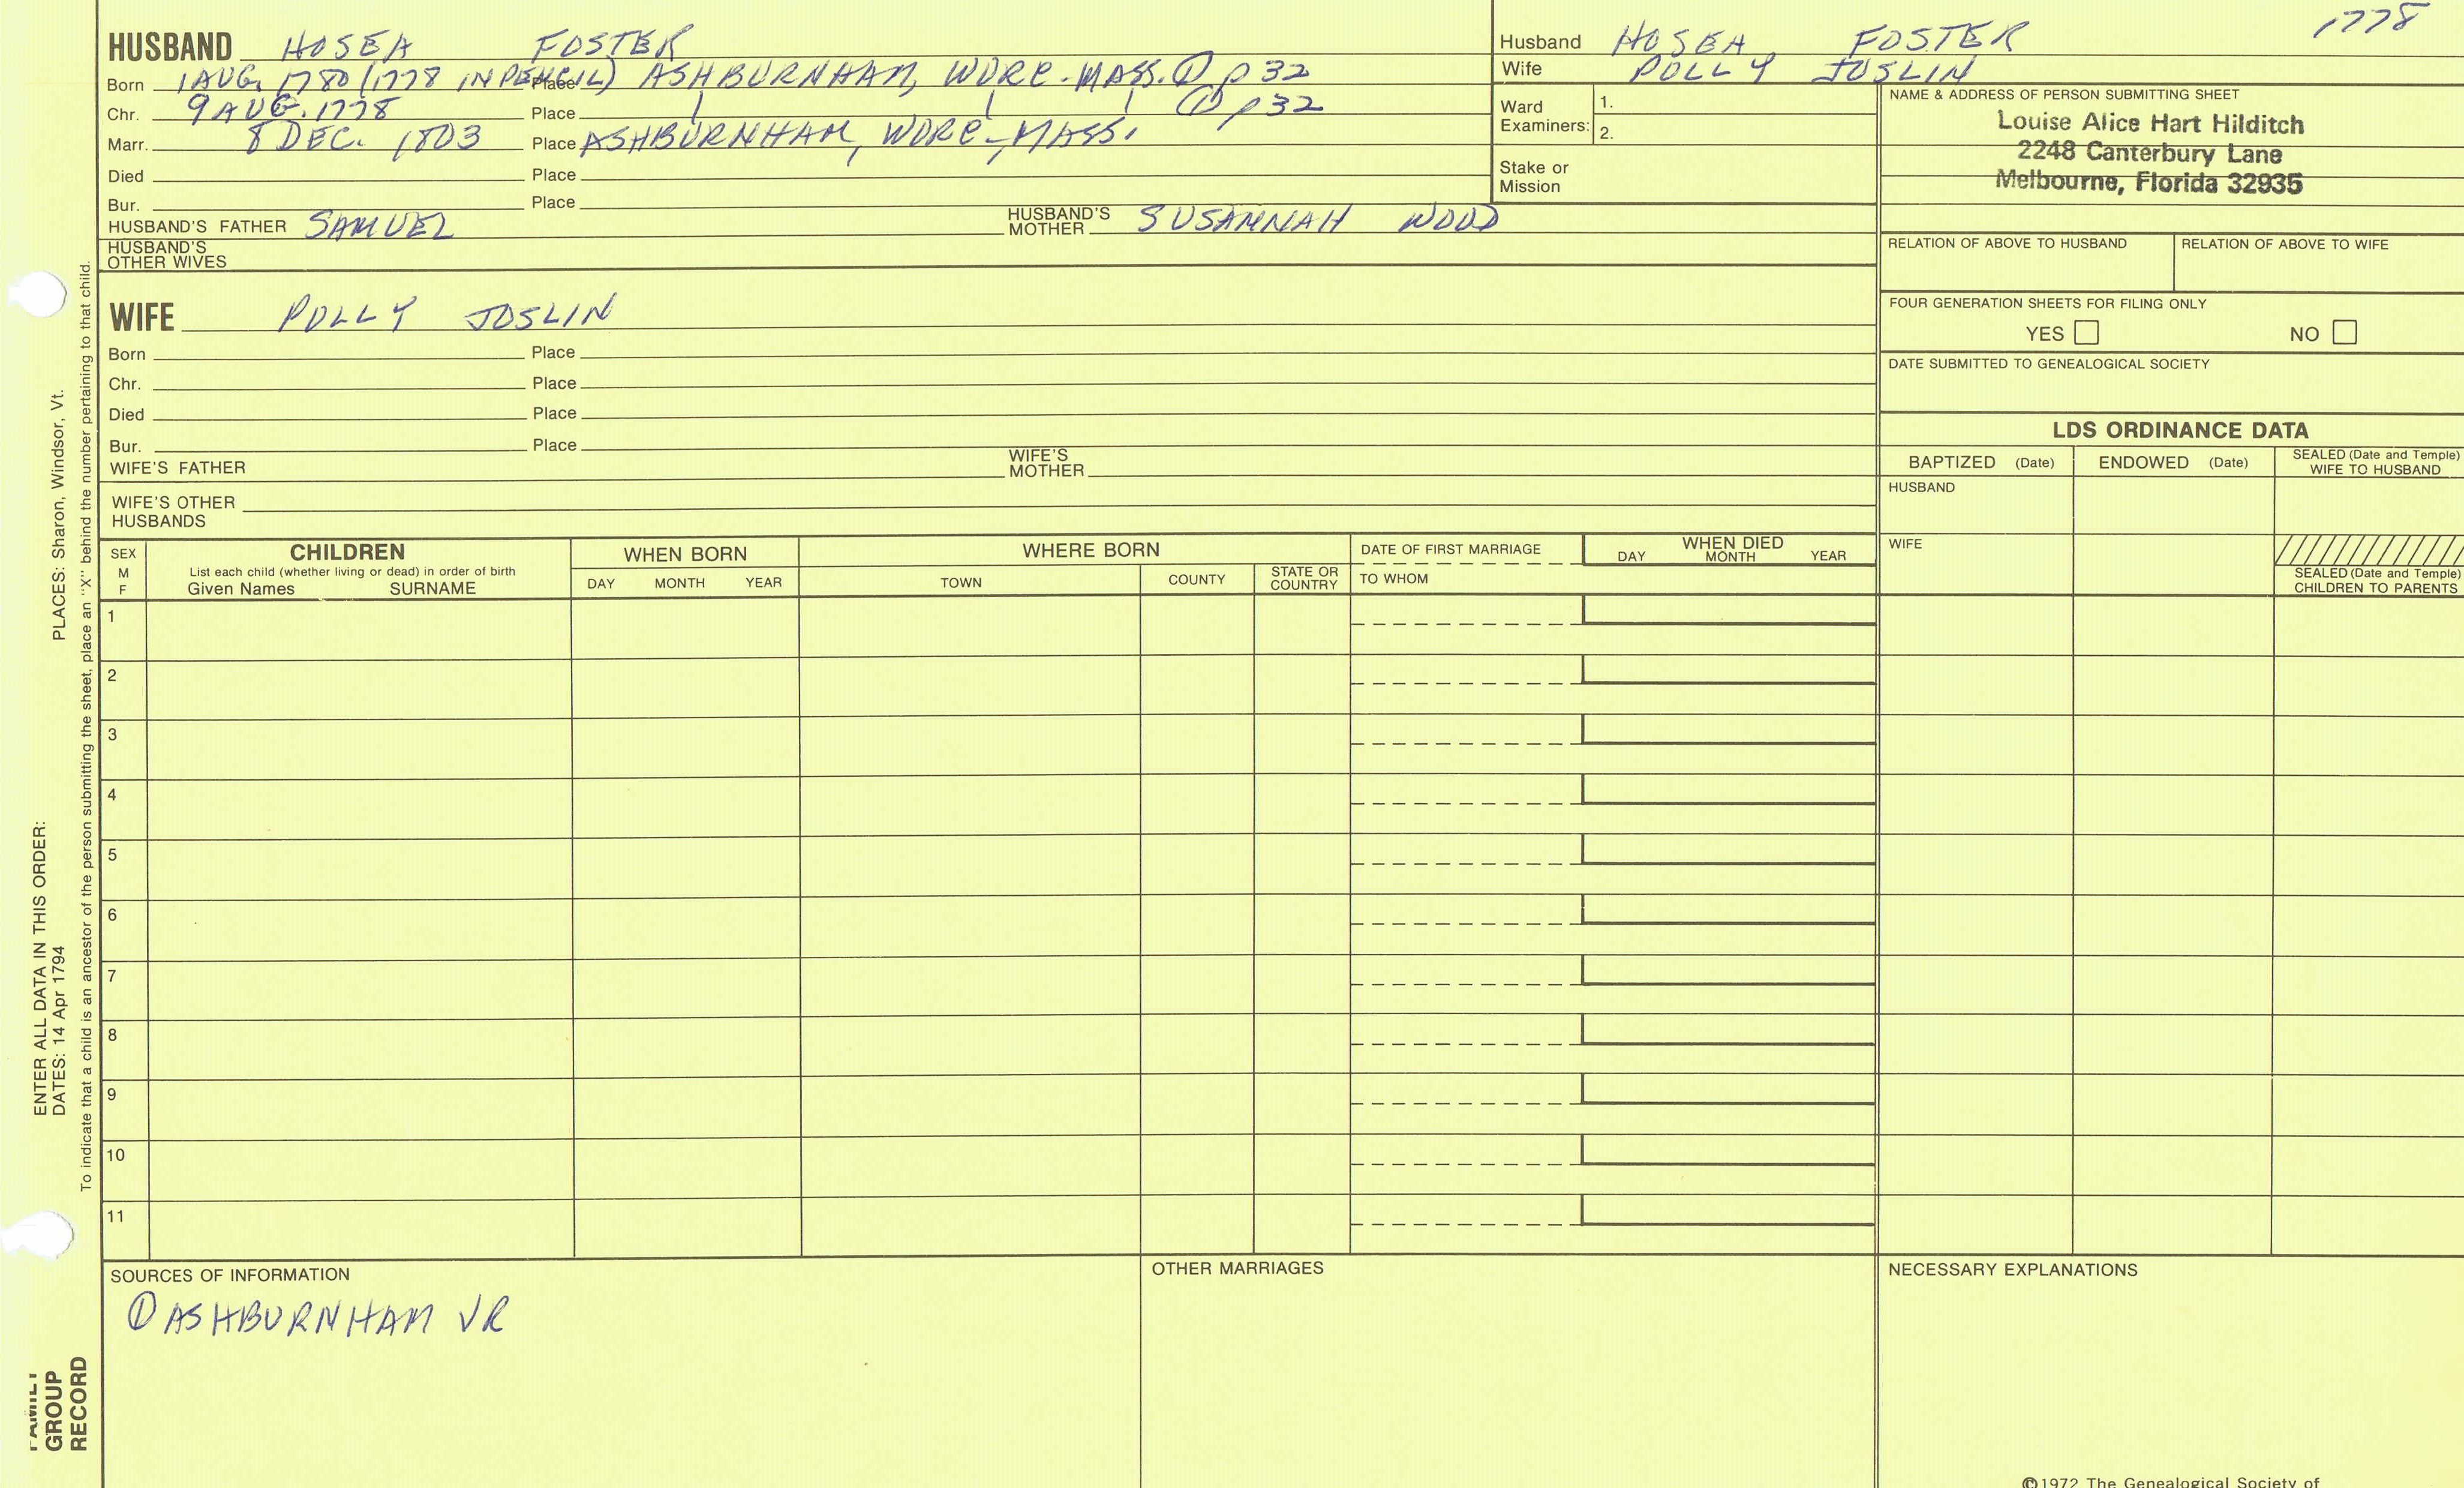 HUSBAND HOSEA FOSTER
Born 1 AUG. 1780 (1778 IN PENCIL) Place ASHBURNHAM, WORC-MASS. ① p 32
Chr. 9 AUG. 1778 Place ① p 32
Marr. 8 DEC. 1803 Place ASHBURNHAM, WORC-MASS.
Died Place
Bur. Place
HUSBAND'S FATHER SAMUEL HUSBAND'S MOTHER SUSANNAH WOOD
HUSBAND'S
OTHER WIVES
Husband HOSEA, FOSTER 1778
Wife POLLY JOSLIN
Ward
Examiners: 1.
2.
Stake or
Mission
NAME & ADDRESS OF PERSON SUBMITTING SHEET
Louise Alice Hart Hilditch
2248 Canterbury Lane
Melbourne, Florida 32935
RELATION OF ABOVE TO HUSBAND RELATION OF ABOVE TO WIFE
FOUR GENERATION SHEETS FOR FILING ONLY
YES NO
DATE SUBMITTED TO GENEALOGICAL SOCIETY
WIFE POLLY JOSLIN
Born Place
Chr. Place
Died Place
Bur. Place
WIFE'S FATHER WIFE'S MOTHER
WIFE'S OTHER
HUSBANDS
LDS ORDINANCE DATA
BAPTIZED (Date) ENDOWED (Date) SEALED (Date and Temple) WIFE TO HUSBAND
HUSBAND
WIFE
SEALED (Date and Temple)
CHILDREN TO PARENTS
SEX
M
F
CHILDREN
List each child (whether living or dead) in order of birth
Given Names SURNAME
WHEN BORN
DAY MONTH YEAR
WHERE BORN
TOWN COUNTY STATE OR COUNTRY
DATE OF FIRST MARRIAGE
TO WHOM
WHEN DIED
DAY MONTH YEAR
1
2
3
4
5
6
7
8
9
10
11
SOURCES OF INFORMATION
① ASHBURNHAM VR
OTHER MARRIAGES
NECESSARY EXPLANATIONS
©1972 The Genealogical Society of
PLACES: Sharon, Windsor, Vt.
To indicate that a child is an ancestor of the person submitting the sheet, place an "X" behind the number pertaining to that child.
ENTER ALL DATA IN THIS ORDER:
DATES: 14 Apr 1794
FAMILY
GROUP
RECORD